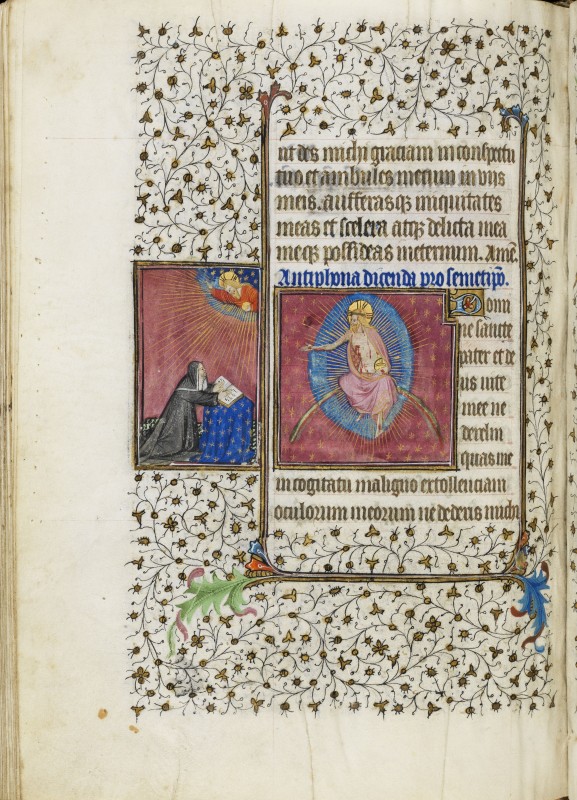 ut des michi graciam in conspectu
tuo et ambules mecum in viis
meis. aufferasq; iniquitates
meas et scelera atq; delicta mea
meq; possideas in eternum. Amē.
Antiphona dicenda pro semetip̄o.
Domi
ne sancte
pater et de
us vite
mee ne
derelin
quas me
in cogitatu maligno extollenciam
oculorum meorum ne dederis michi